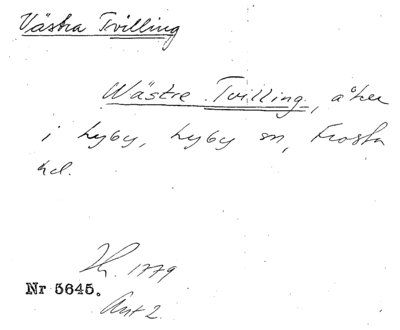 Västra Tvilling
Wästre Tvilling, åker
i Lyby, Lyby sn, Frosta
hd.
Lh. 1779
Nr 5645.
Akt 2.